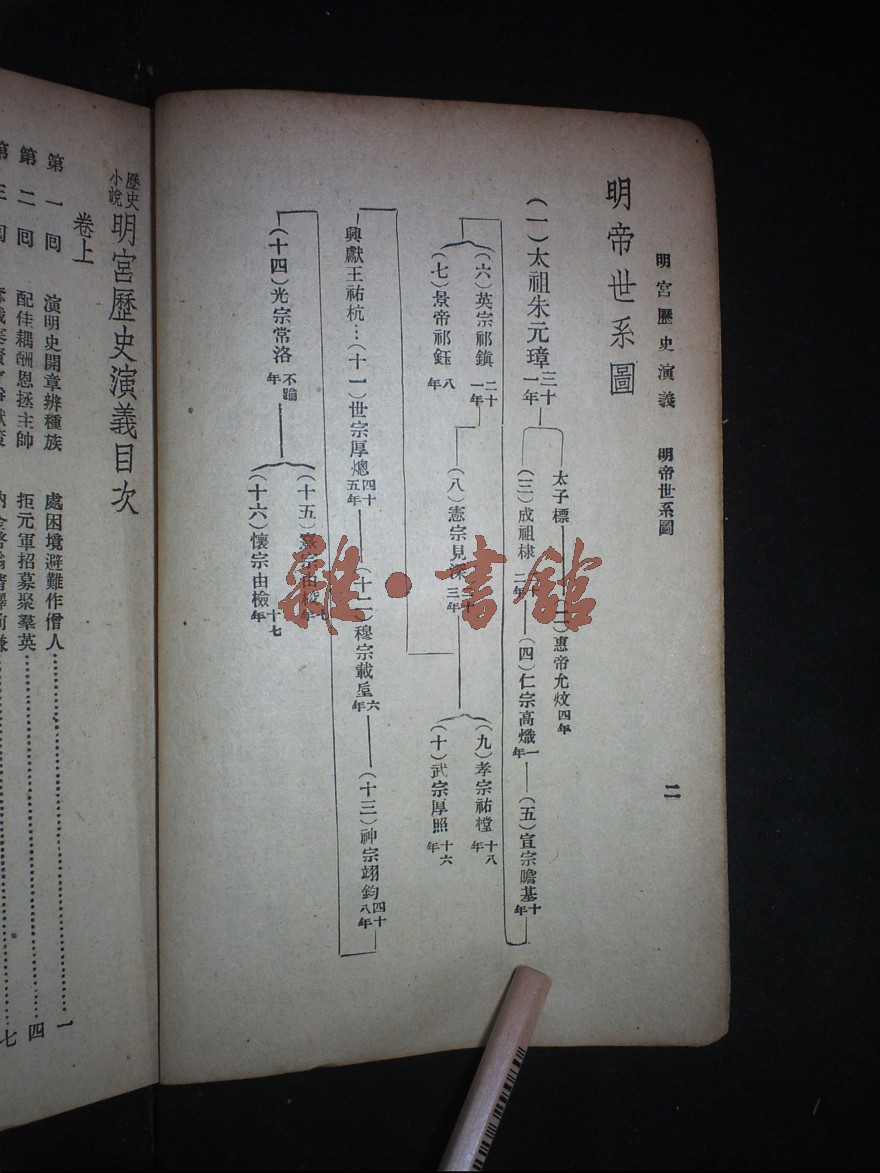 明宮歷史演義 明帝世系圖 二
明帝世系圖
(一)太祖朱元璋三十一年
太子標
(二)惠帝允炆四年
(三)成祖棣二年
(四)仁宗高熾一年
(五)宣宗瞻基十年
(六)英宗祁鎭二十一年
(七)景帝祁鈺八年
(八)憲宗見深三年
(九)孝宗祐樘十八年
(十)武宗厚照十六年
興獻王祐杭…(十一)世宗厚熜四十五年
(十二)穆宗載垕六年
(十三)神宗翊鈞四十八年
(十四)光宗常洛不踰年
(十五)熹宗由年
(十六)懷宗由檢十七年
雜·書館
歷史小說 明宮歷史演義目次
卷上
第一回 演明史開章辨種族 處困境避難作僧人 一
第二回 配佳耦酬恩拯主帥 拒元軍招募聚羣英 四
第三回 七